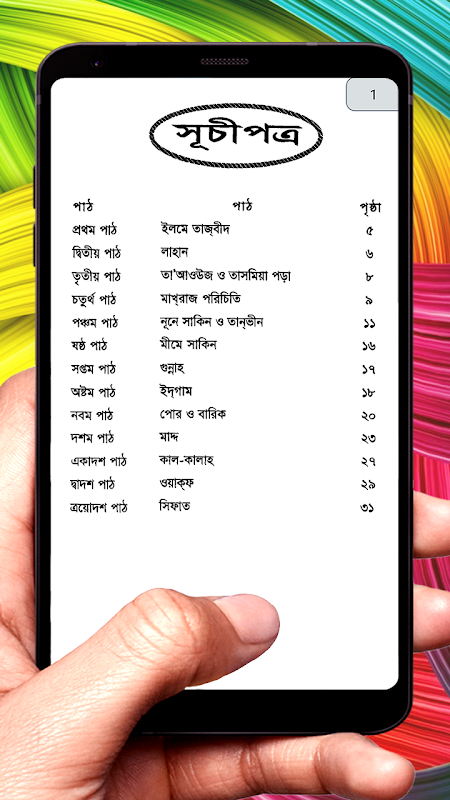 1
সূচীপত্র
পাঠ পাঠ পৃষ্ঠা
প্রথম পাঠ ইলমে তাজ্বীদ ৫
দ্বিতীয় পাঠ লাহান ৬
তৃতীয় পাঠ তা'আওউজ ও তাসমিয়া পড়া ৮
চতুর্থ পাঠ মাখ্রাজ পরিচিতি ৯
পঞ্চম পাঠ নূনে সাকিন ও তান্ভীন ১১
ষষ্ঠ পাঠ মীমে সাকিন ১৬
সপ্তম পাঠ গুন্নাহ ১৭
অষ্টম পাঠ ইদ্গাম ১৮
নবম পাঠ পোর ও বারিক ২০
দশম পাঠ মাদ্দ ২৩
একাদশ পাঠ কাল-কালাহ ২৭
দ্বাদশ পাঠ ওয়াক্ফ ২৯
ত্রয়োদশ পাঠ সিফাত ৩১